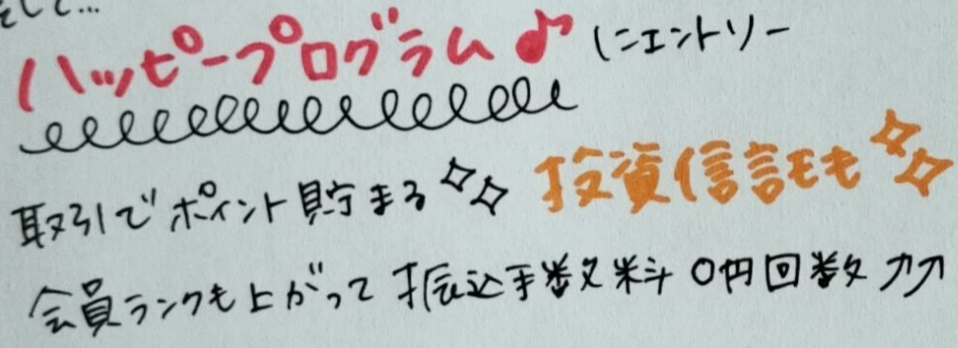 そして…
ハッピープログラム♪にエントリー
取引でポイント貯まる 投資信託も
会員ランクも上がって振込手数料0円回数↗↗